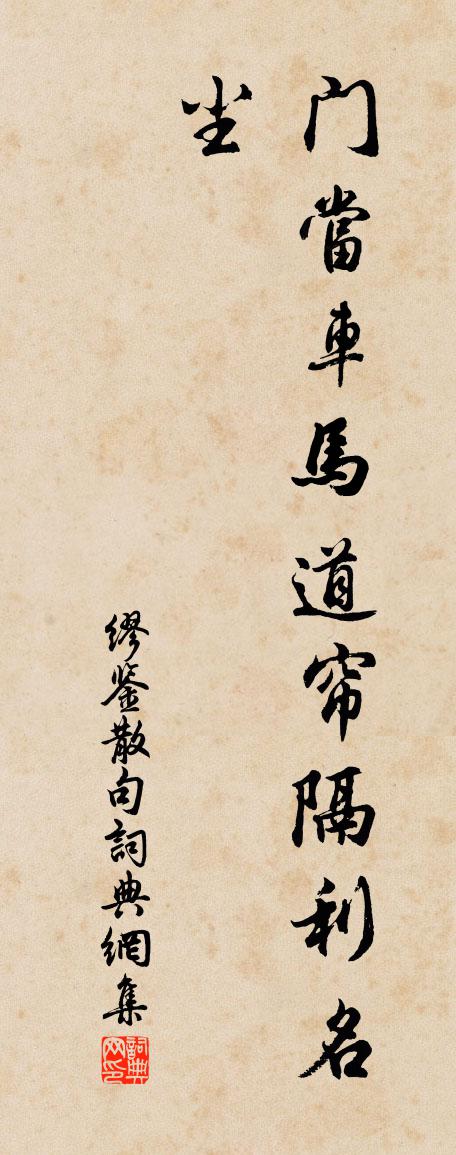 門當車馬道帘隔利名
尘
缪鉴散句詞典網集
詞典
网印